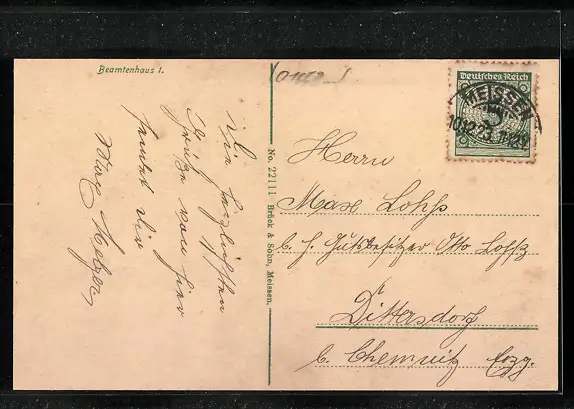 Beamtenhaus 1.
Die herzlichsten
Grüße von hier
sendet Dir
No. 22111 Brück & Sohn, Meissen.
Deutsches Reich
5
MEISSEN
10.12.23
Herrn
Max Lohß
b. H. Gutsbesitzer Otto Lohß
Dittersdorf
b. Chemnitz Erzg.